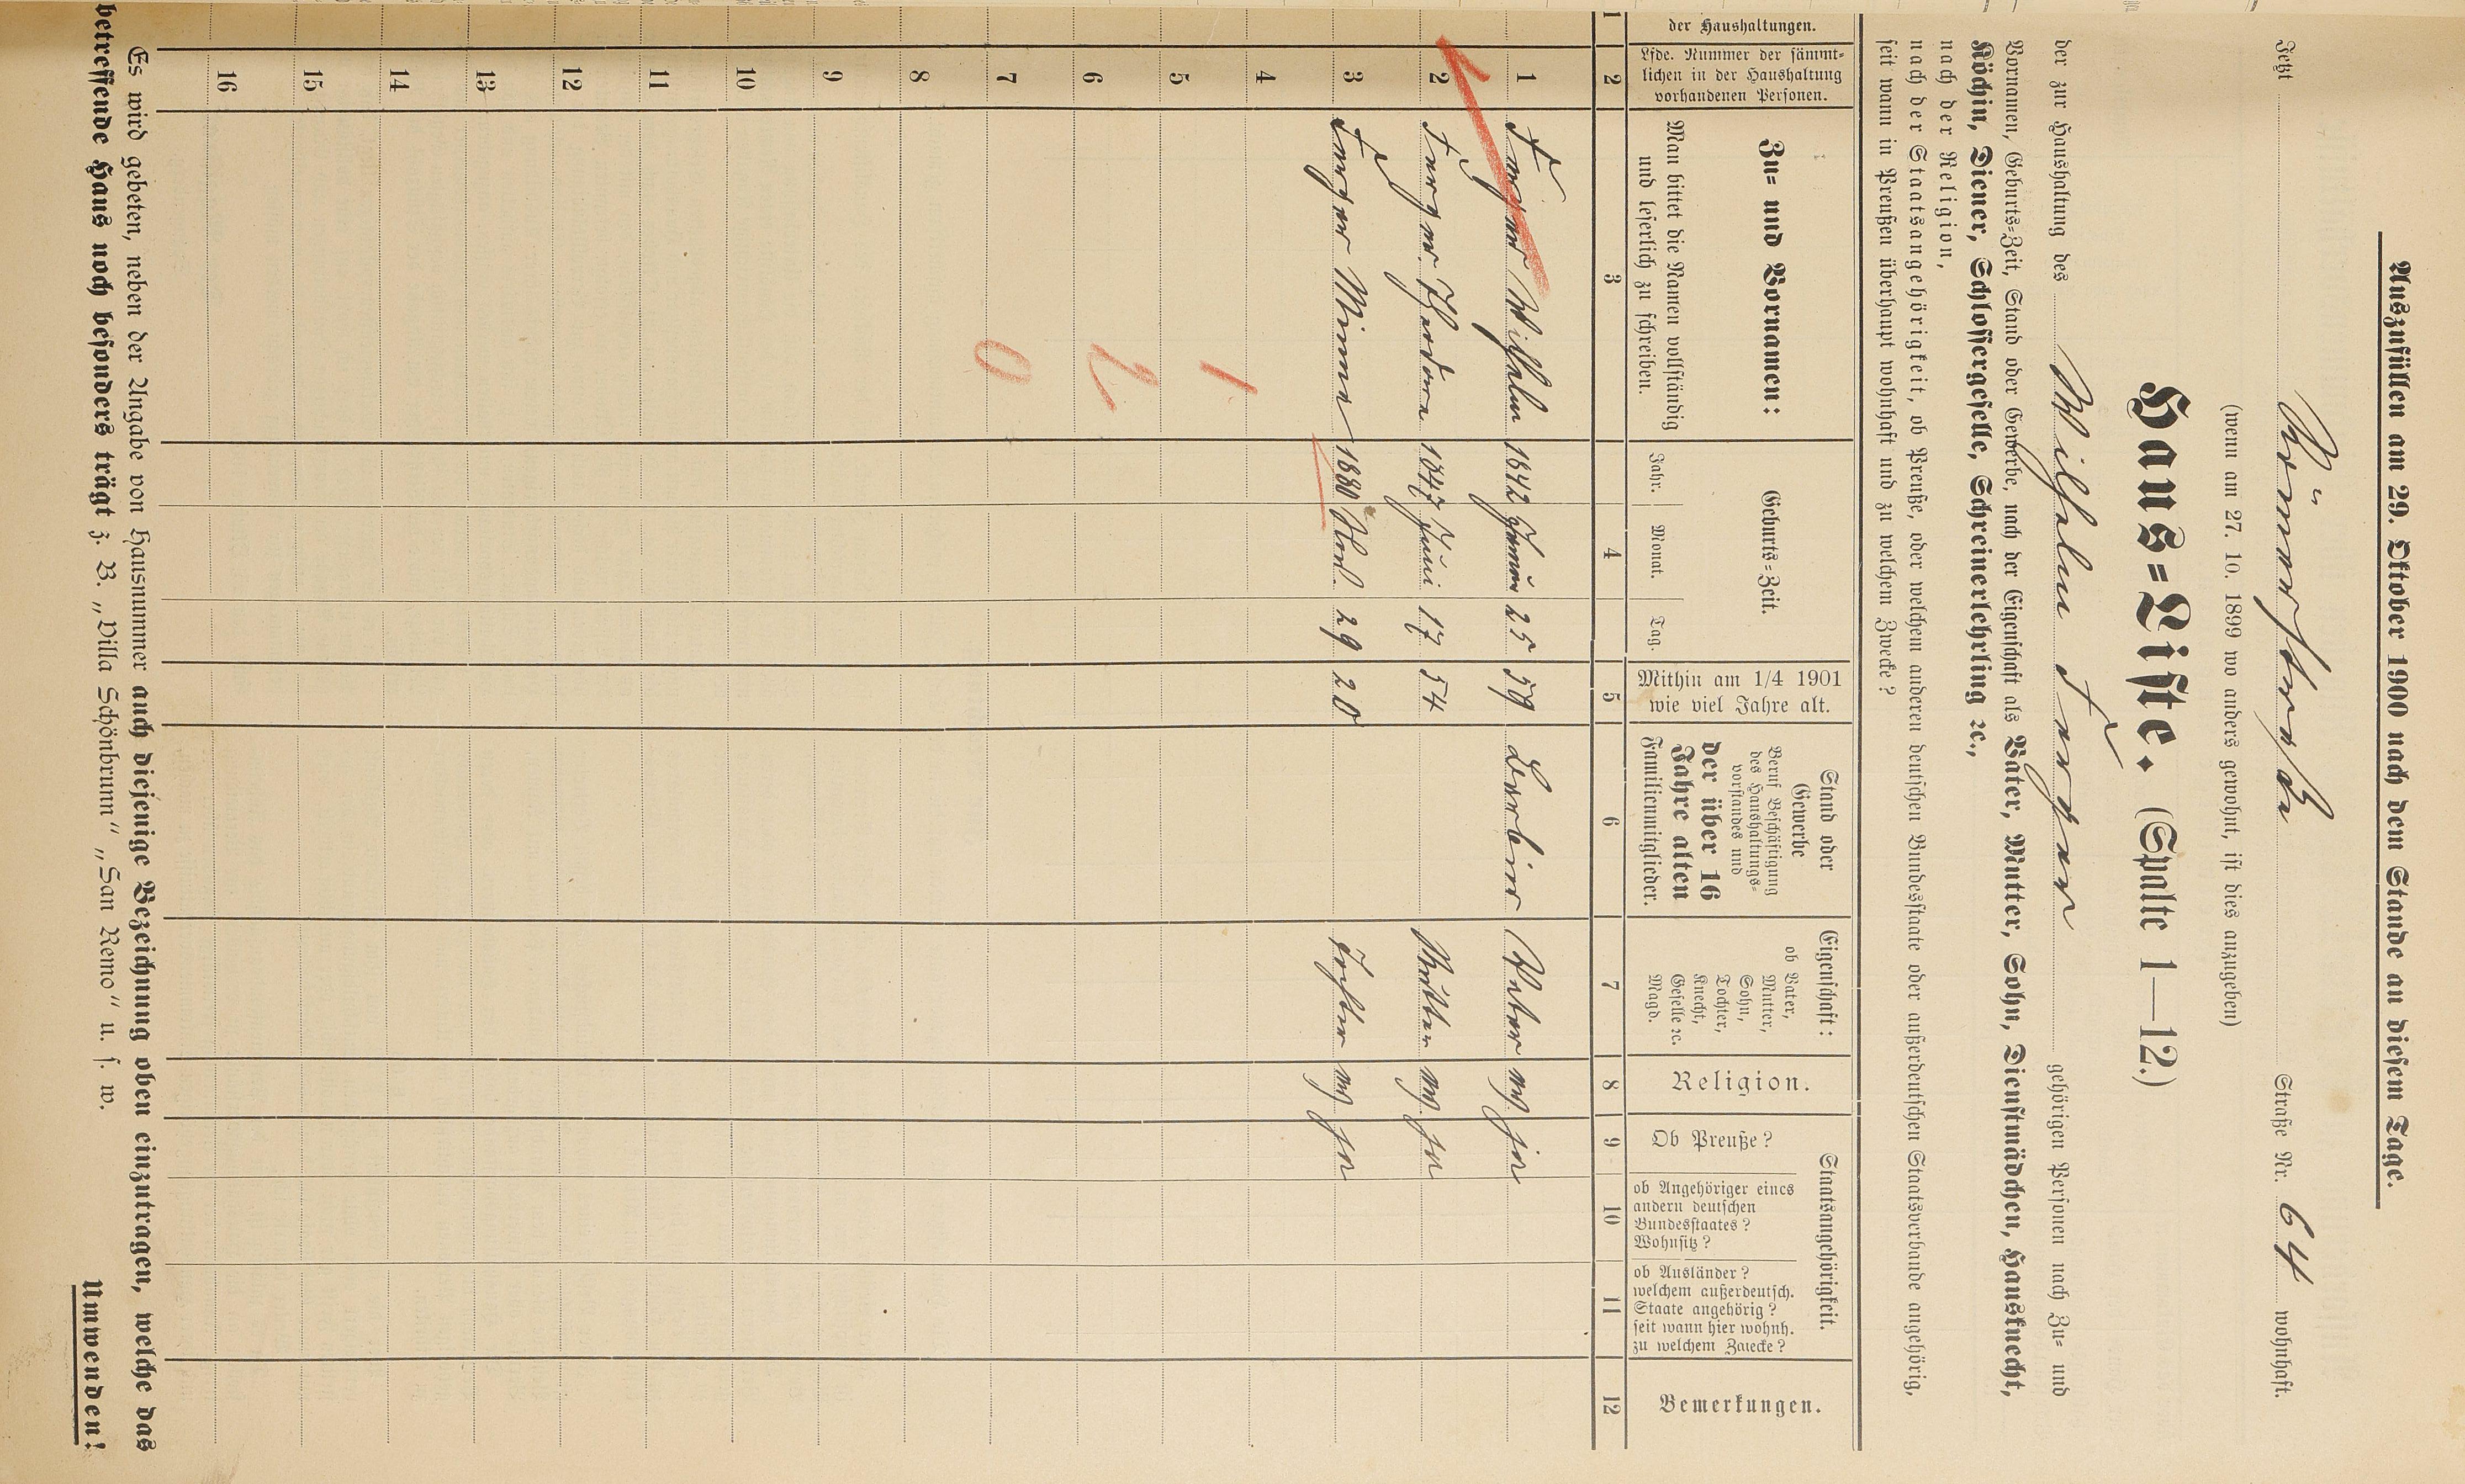 Auszufüllen am 29. Oktober 1900 nach dem Stande an diesem Tage.
Jetzt Römerstraße Straße Nr. 64 wohnhaft.
(wenn am 27. 10. 1899 wo anders gewohnt, ist dies anzugeben)
Haus=Liste. (Spalte 1—12.)
der zur Haushaltung des Wilhelm gehörigen Personen nach Zu= und
Vornamen, Geburts=Zeit, Stand oder Gewerbe, nach der Eigenschaft als Vater, Mutter, Sohn, Dienstmädchen, Hausknecht,
Köchin, Diener, Schlossergeselle, Schreinerlehrling ꝛc.,
nach der Religion,
nach der Staatsangehörigkeit, ob Preuße, oder welchem anderen deutschen Bundesstaate oder außerdeutschen Staatsverbande angehörig,
seit wann in Preußen überhaupt wohnhaft und zu welchem Zwecke?
der Haushaltungen.
Lfde. Nummer der sämmt=
lichen in der Haushaltung
vorhandenen Personen.
Zu= und Vornamen:
Man bittet die Namen vollständig
und leserlich zu schreiben.
Geburts=Zeit.
Jahr. Monat. Tag.
Mithin am 1/4 1901
wie viel Jahre alt.
Stand oder
Gewerbe
Beruf Beschäftigung
des Haushaltungs=
vorstandes und
der über 16
Jahre alten
Familienmitglieder.
Eigenschaft:
ob Vater,
Mutter,
Sohn,
Tochter,
Knecht,
Geselle ꝛc.
Magd.
Religion.
Staatsangehörigkeit.
Ob Preuße?
ob Angehöriger eines
andern deutschen
Bundesstaates?
Wohnsitz?
ob Ausländer?
welchem außerdeutsch.
Staate angehörig?
seit wann hier wohnh.
zu welchem Zwecke?
Bemerkungen.
1 2 3 4 5 6 7 8 9 10 11 12
1 Wilhelm 1842 25 59 Vater ja
2 1847 Juni 17 54 Mutter ja
3 Minna 1880 Nov. 29 20 Tochter ja
4
5 1
6 2
7 0
8
9
10
11
12
13
14
15
16
Es wird gebeten, neben der Angabe von Hausnummer auch diejenige Bezeichnung oben einzutragen, welche das
betreffende Haus noch besonders trägt z. B. „Villa Schönbrunn“ „San Remo“ u. s. w.
Umwenden!